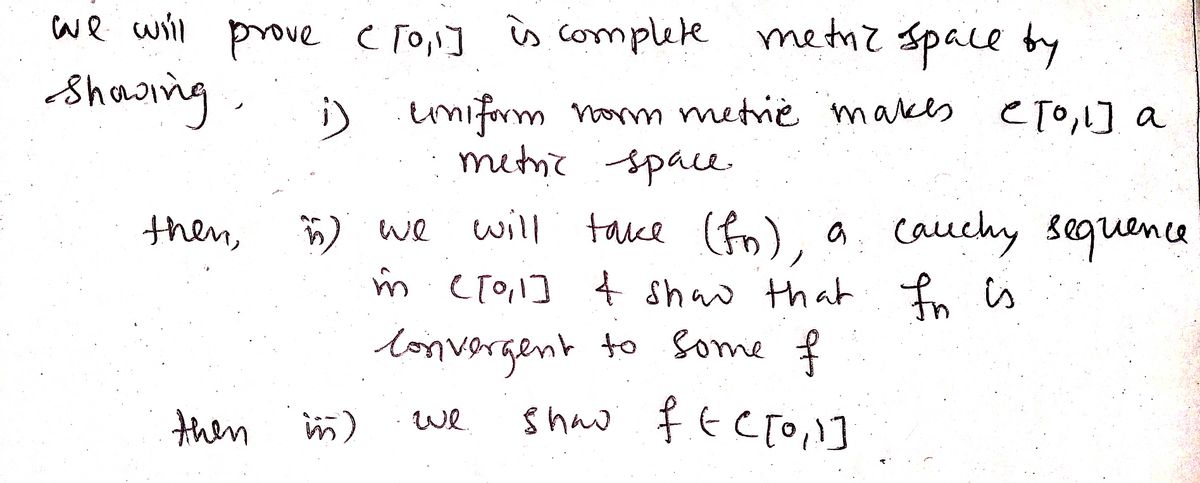 we will prove C[0,1] is complete metric space by
showing, i) uniform norm metric makes C[0,1] a
metric space
then, ii) we will take (fn), a cauchy sequence
in C[0,1] & show that fn is
convergent to some f
then iii) we show f ∈ C[0,1]